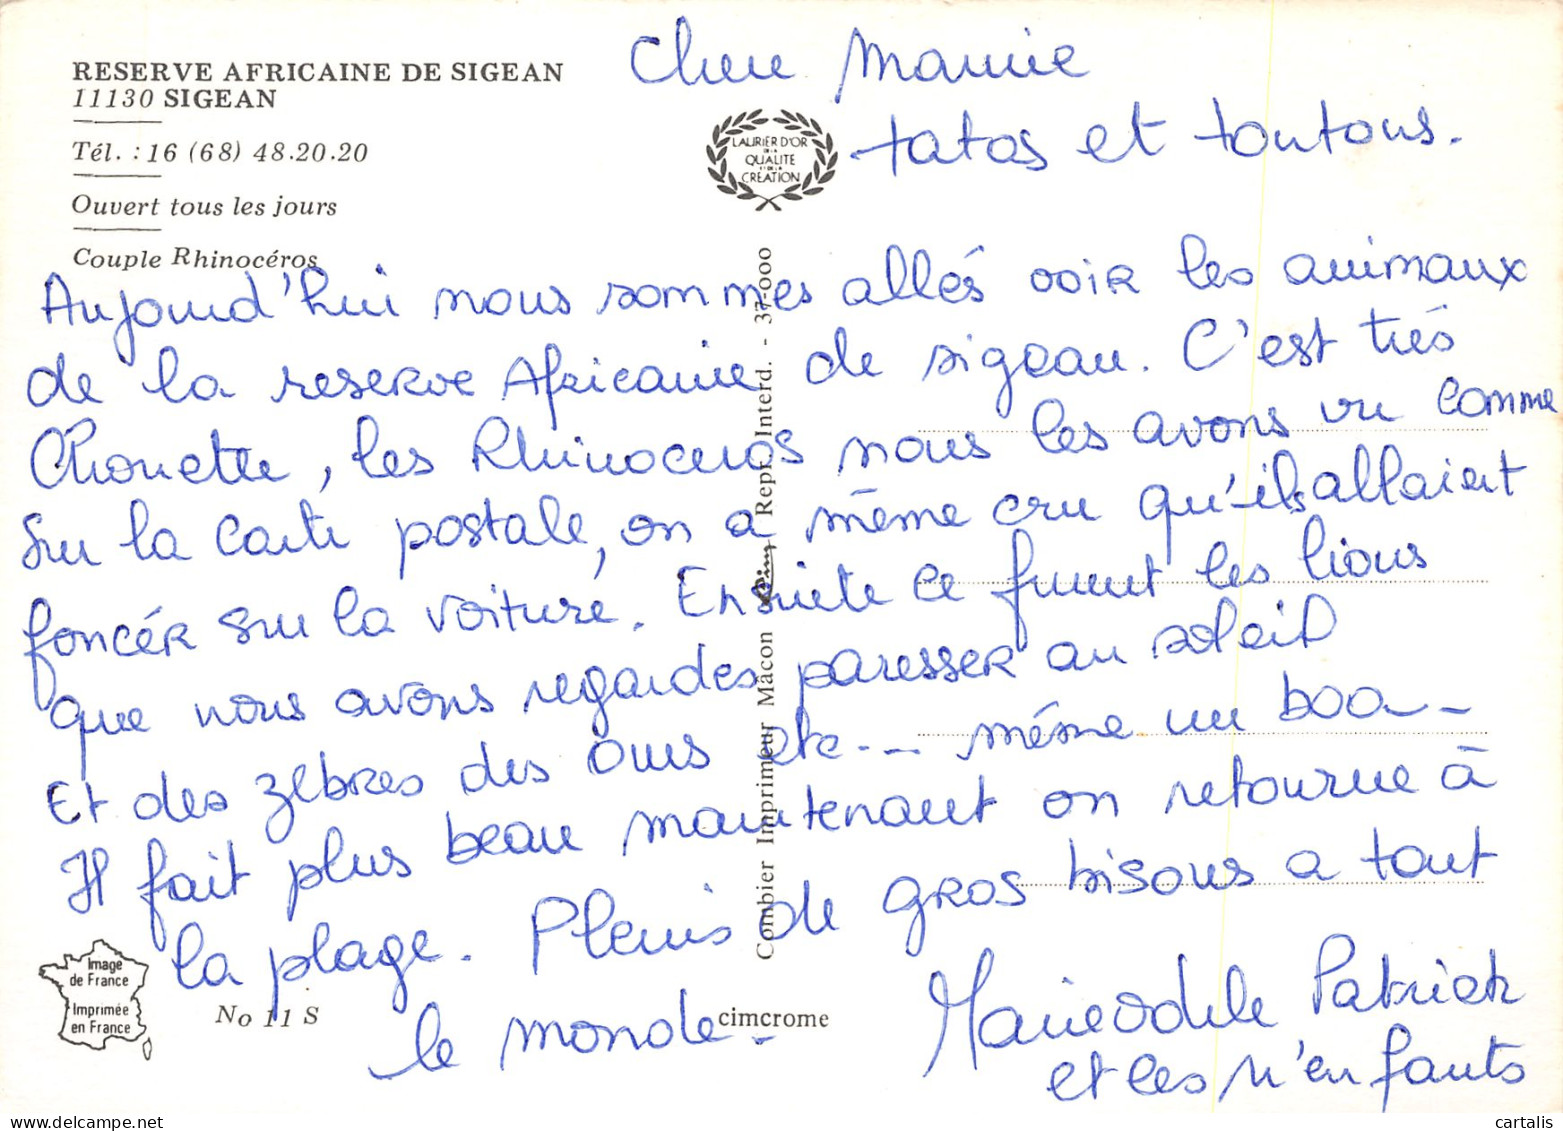 RESERVE AFRICAINE DE SIGEAN
11130 SIGEAN
Tél. : 16 (68) 48.20.20
Ouvert tous les jours
Couple Rhinocéros
LAURIER D'OR
DE LA
QUALITE
ET DE LA
CREATION
Cher Mamie
tatas et tontons.
Aujourd'hui nous sommes allés voir les animaux
de la reserve Africaine de sigean. C'est très
Chouette, les Rhinoceros nous les avons vu comme
sur la carte postale, on a même cru qu'ils allaient
foncér sur la voiture. Ensuite ce furent les lions
que nous avons regardes paresser au soleil
Et des zebres des ours etc... même un boa
Il fait plus beau maintenant on retourne à
la plage. Pleins de gros bisous a tout
le monde.
Marieodile Patrick
et les n'enfants
Combier Imprimeur Mâcon Cim Repr. Interd. - 37-000
Image
de France
Imprimée
en France
No 11 S
cimcrome
cartalis